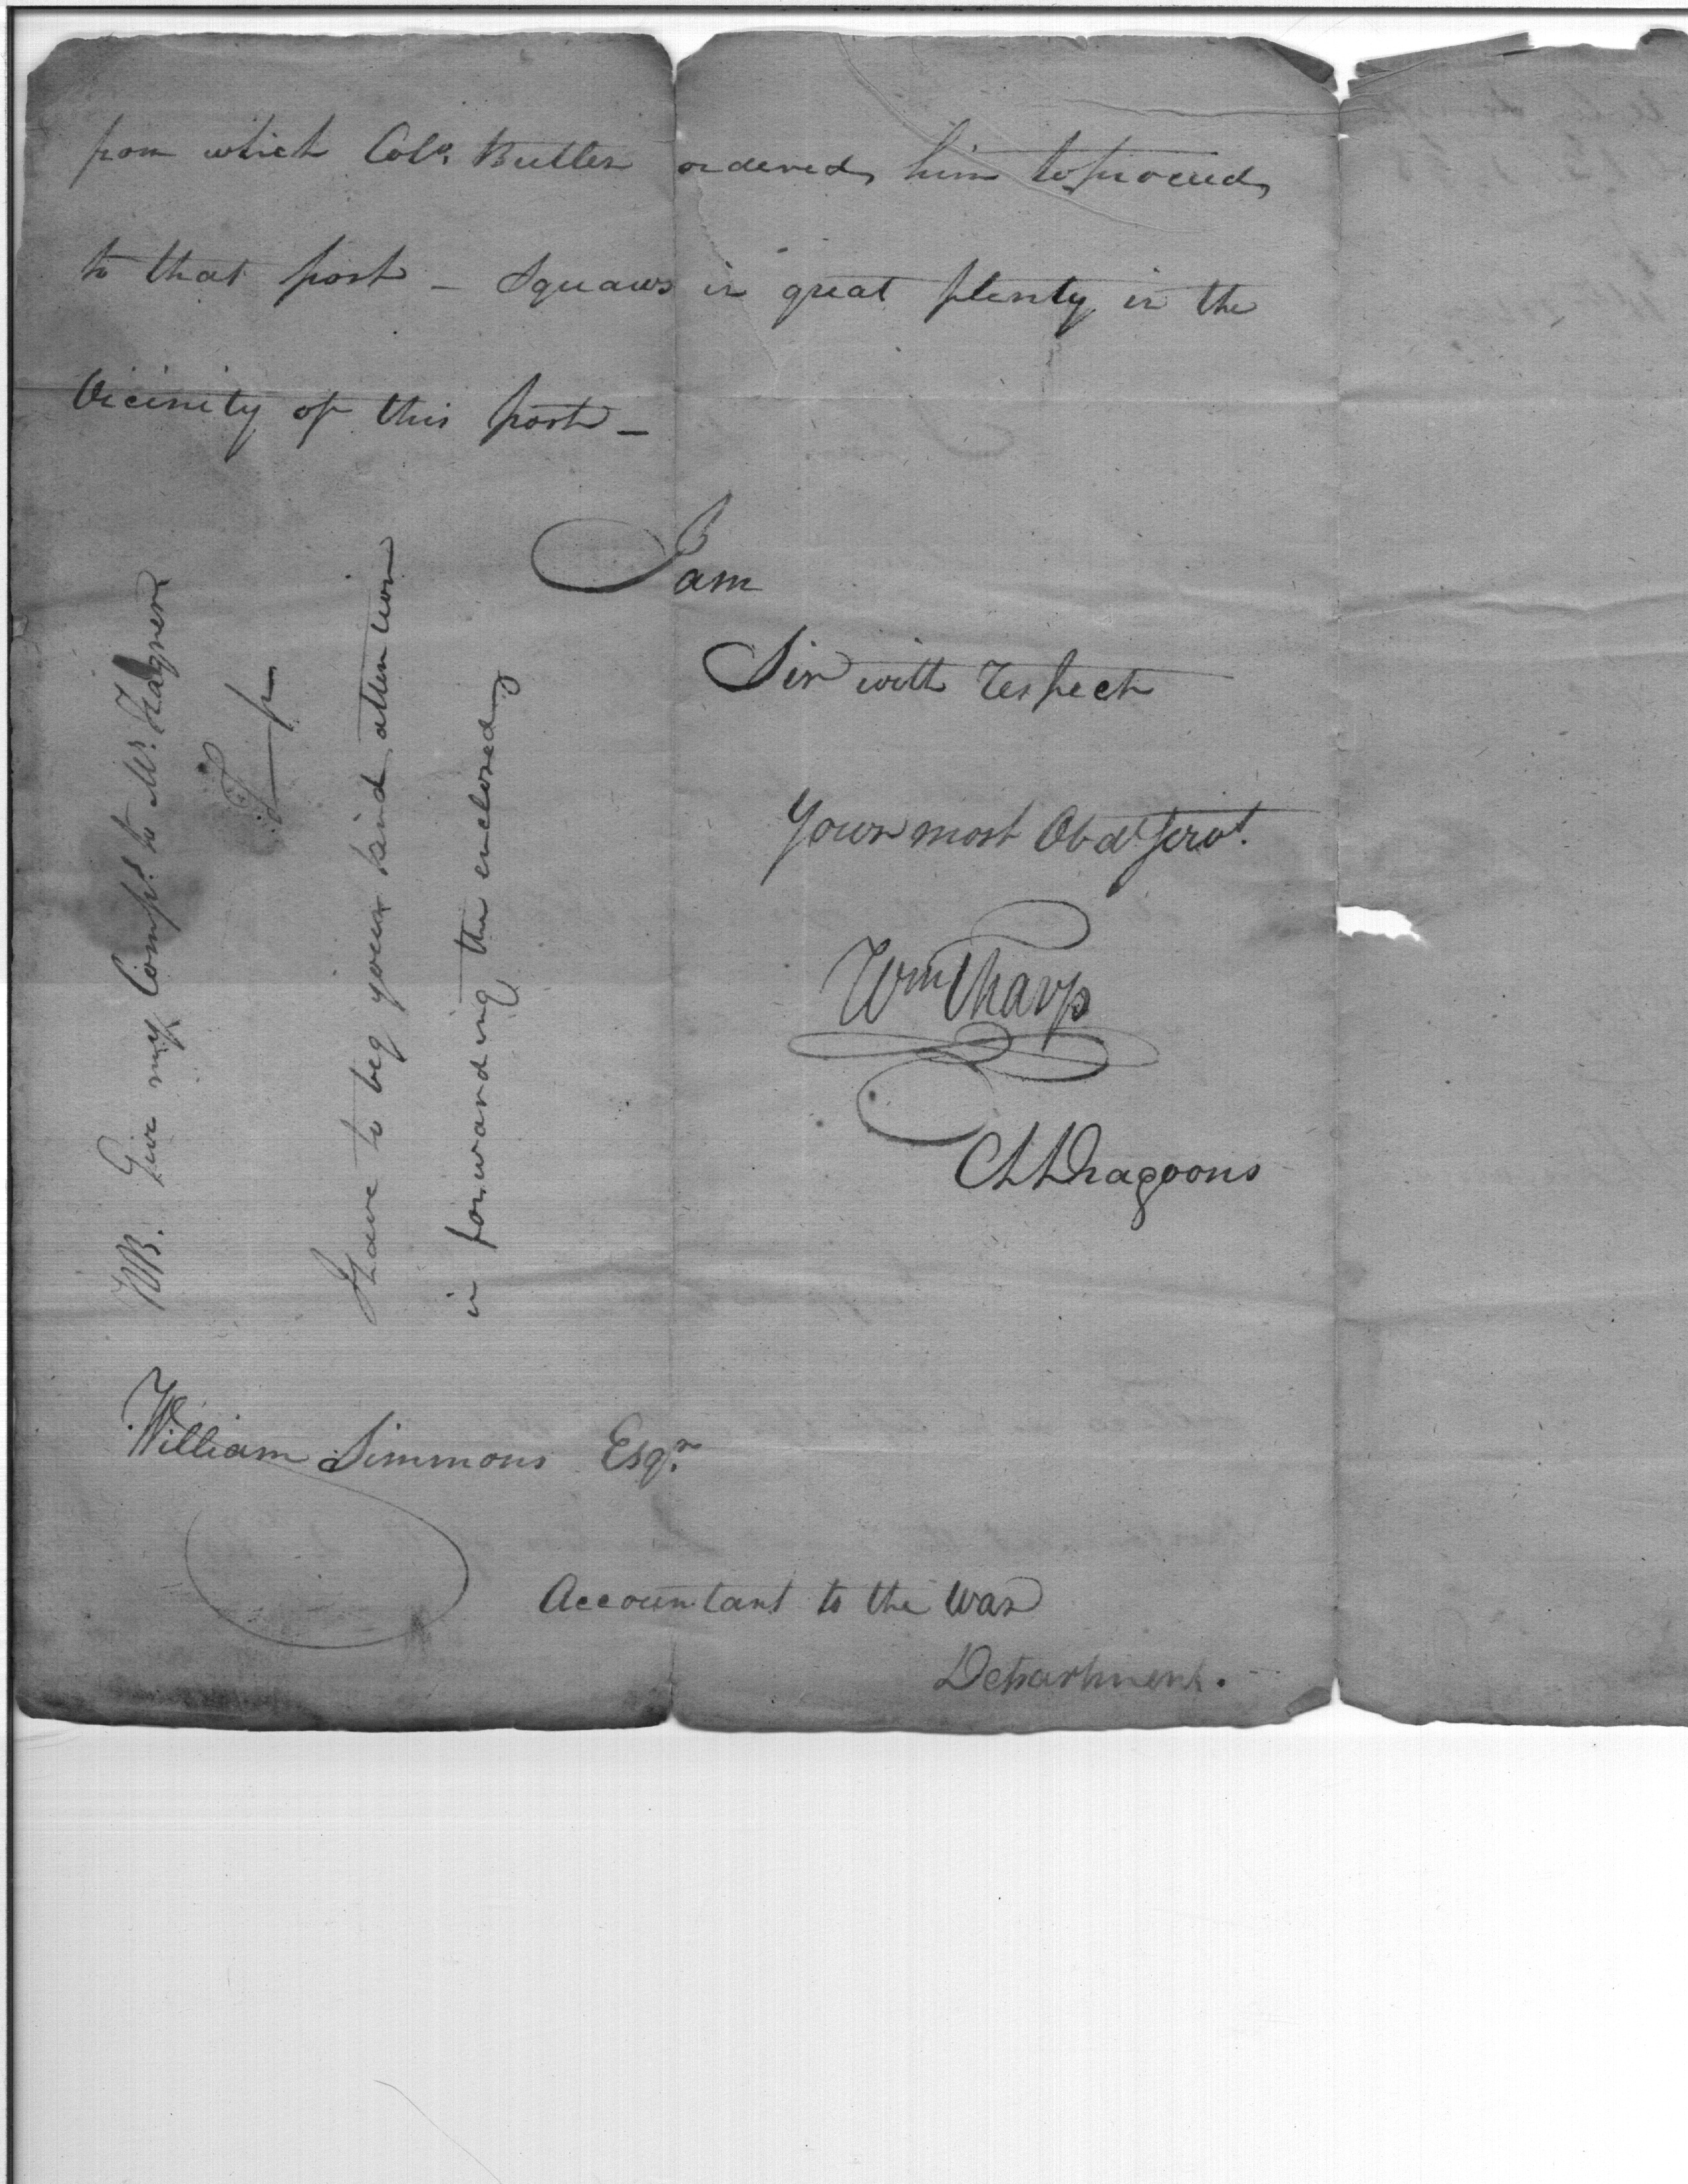 from which Colo. Butler ordered him to proceed
to that post - Squaws in great plenty in the
Vicinity of this post -
I am
Sir with respect
Your most Obdt Servt.
Wm Tharp
Dragoons
NB. Give my Compts. to Mr. Hagner
I have to beg your kind attention
in forwarding the enclosed
William Simmons Esqr.
Accountant to the War
Department.